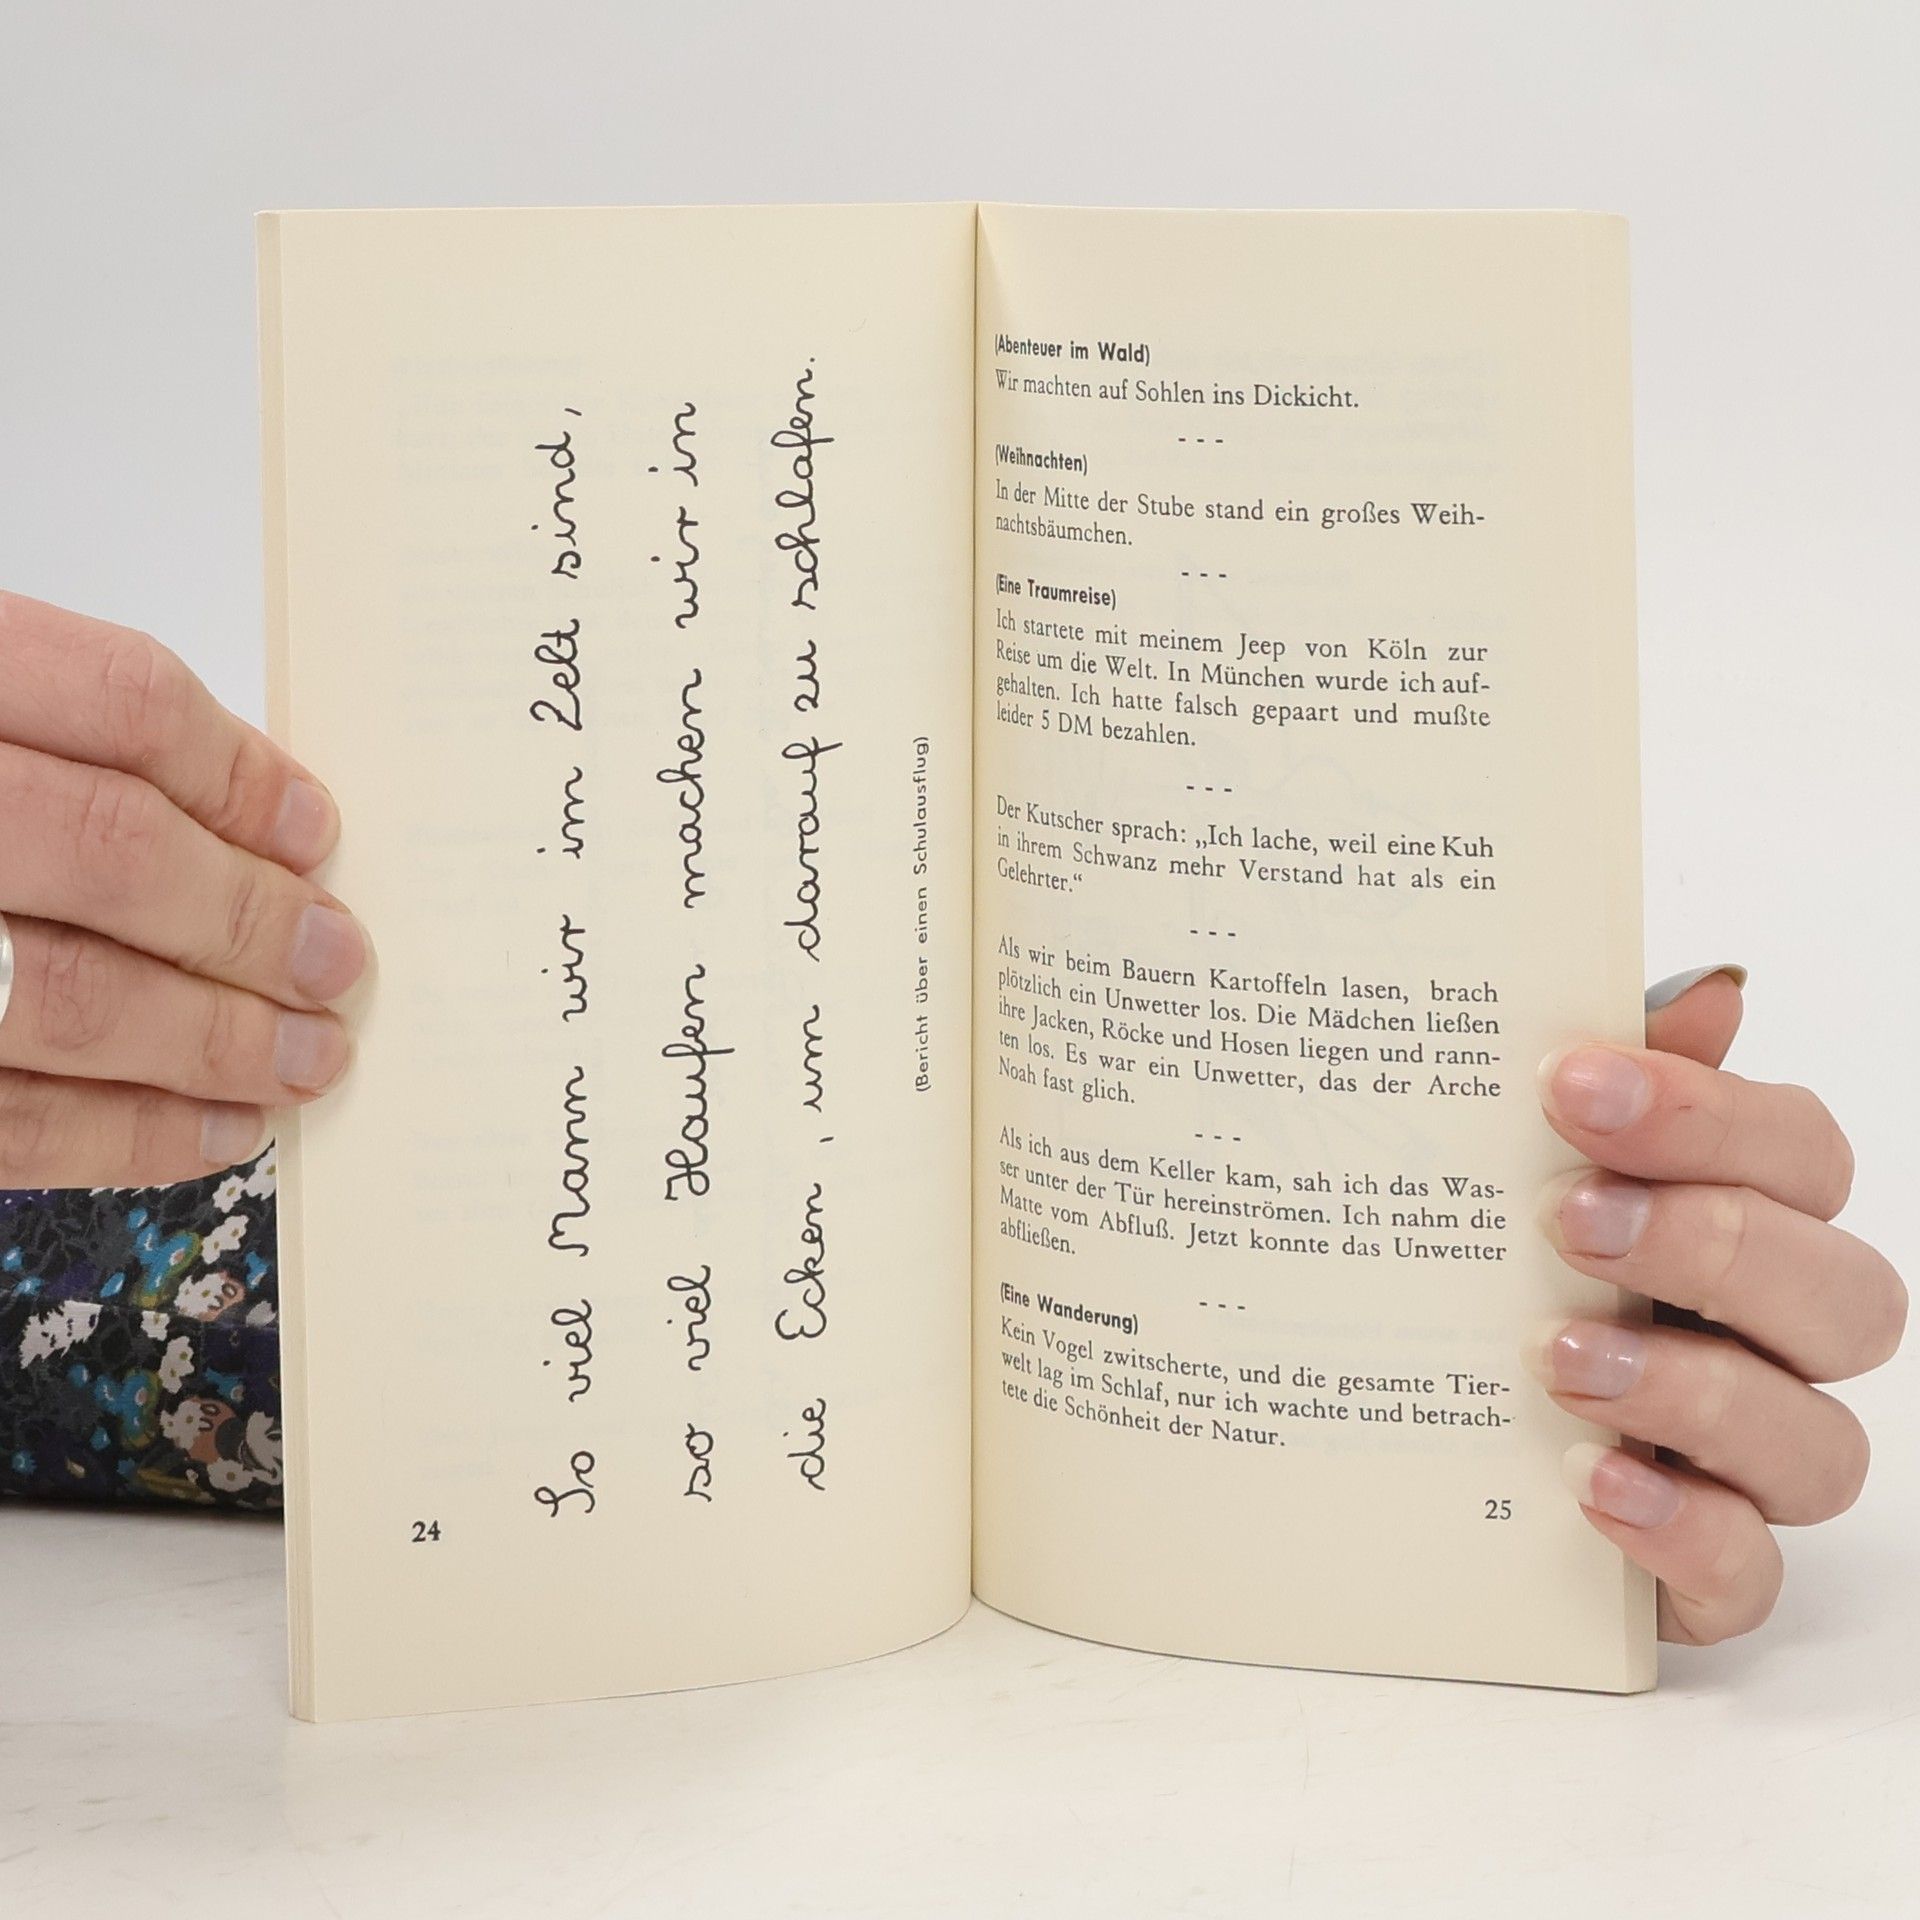 So viel Mann wir im Zelt sind,
so viel Haufen machen wir in
die Ecken, um darauf zu schlafen.
(Bericht über einen Schulausflug)
24
(Abenteuer im Wald)
Wir machten auf Sohlen ins Dickicht.
- - -
(Weihnachten)
In der Mitte der Stube stand ein großes Weih-
nachtsbäumchen.
- - -
(Eine Traumreise)
Ich startete mit meinem Jeep von Köln zur
Reise um die Welt. In München wurde ich auf-
gehalten. Ich hatte falsch gepaart und mußte
leider 5 DM bezahlen.
- - -
Der Kutscher sprach: „Ich lache, weil eine Kuh
in ihrem Schwanz mehr Verstand hat als ein
Gelehrter.“
- - -
Als wir beim Bauern Kartoffeln lasen, brach
plötzlich ein Unwetter los. Die Mädchen ließen
ihre Jacken, Röcke und Hosen liegen und rann-
ten los. Es war ein Unwetter, das der Arche
Noah fast glich.
- - -
Als ich aus dem Keller kam, sah ich das Was-
ser unter der Tür hereinströmen. Ich nahm die
Matte vom Abfluß. Jetzt konnte das Unwetter
abfließen.
- - -
(Eine Wanderung)
Kein Vogel zwitscherte, und die gesamte Tier-
welt lag im Schlaf, nur ich wachte und betrach-
tete die Schönheit der Natur.
25